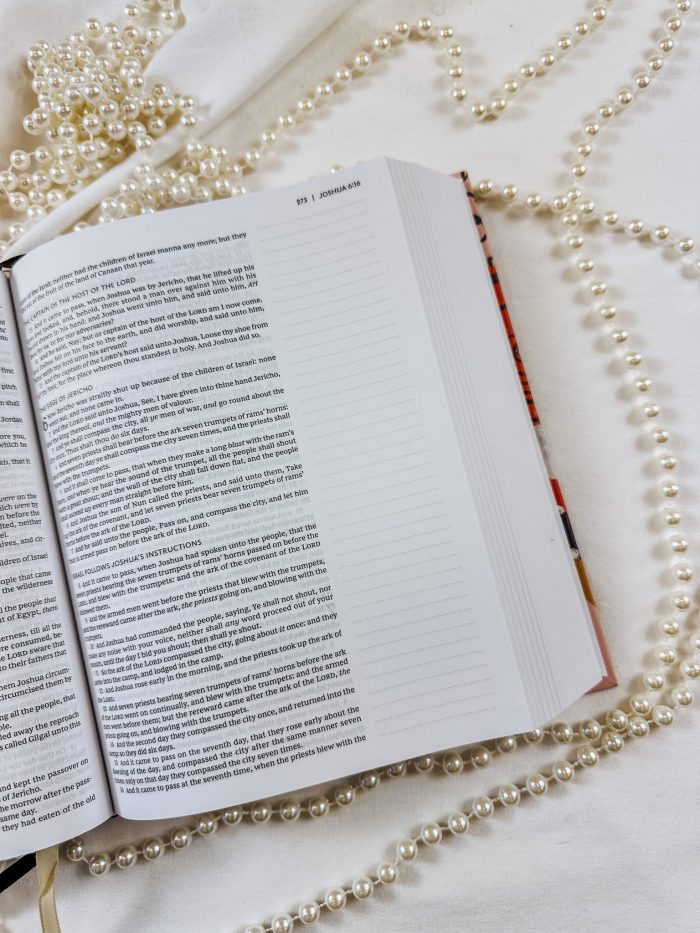 first
pitch
shall
Jordan
ore you,
which he
an, that it
were on the
hich were by
n before the
lted, neither
ael.
nives, and cir-
children of Israel
eople that came
the wilderness
l the people that
of Egypt, them
erness, till all the
ere consumed, be-
he LORD sware that
to their fathers that
hem Joshua circum-
circumcised them by
ng all the people, that
ple.
led away the reproach
s called Gilgal unto this
and kept the passover on
of Jericho.
the morrow after the pass-
same day.
they had eaten of the old
273 | JOSHUA 6:16
of the land; neither had the children of Israel manna any more; but they
eat of the fruit of the land of Canaan that year.
CAPTAIN OF THE HOST OF THE LORD
And it came to pass, when Joshua was by Jericho, that he lifted up his
and looked, and, behold, there stood a man over against him with his
drawn in his hand: and Joshua went unto him, and said unto him, Art
for us, or for our adversaries?
And he said, Nay; but as captain of the host of the LORD am I now come.
Joshua fell on his face to the earth, and did worship, and said unto him,
saith my lord unto his servant?
And the captain of the LORD's host said unto Joshua, Loose thy shoe from
thy foot; for the place whereon thou standest is holy. And Joshua did so.
THE SIEGE OF JERICHO
6 Now Jericho was straitly shut up because of the children of Israel: none
went out, and none came in.
And the LORD said unto Joshua, See, I have given into thine hand Jericho,
the king thereof, and the mighty men of valour.
And ye shall compass the city, all ye men of war, and go round about the
once. Thus shalt thou do six days.
And seven priests shall bear before the ark seven trumpets of rams' horns:
the seventh day ye shall compass the city seven times, and the priests shall
blow with the trumpets.
And it shall come to pass, that when they make a long blast with the ram's
horn, and when ye hear the sound of the trumpet, all the people shall shout
with a great shout; and the wall of the city shall fall down flat, and the people
shall ascend up every man straight before him.
And Joshua the son of Nun called the priests, and said unto them, Take
up the ark of the covenant, and let seven priests bear seven trumpets of rams'
horns before the ark of the LORD.
7 And he said unto the people, Pass on, and compass the city, and let him
that is armed pass on before the ark of the LORD.
ISRAEL FOLLOWS JOSHUA'S INSTRUCTIONS
8 And it came to pass, when Joshua had spoken unto the people, that the
seven priests bearing the seven trumpets of rams' horns passed on before the
LORD, and blew with the trumpets: and the ark of the covenant of the LORD
followed them.
9 And the armed men went before the priests that blew with the trumpets,
and the rereward came after the ark, the priests going on, and blowing with the
trumpets.
10 And Joshua had commanded the people, saying, Ye shall not shout, nor
make any noise with your voice, neither shall any word proceed out of your
mouth, until the day I bid you shout; then shall ye shout.
11 So the ark of the LORD compassed the city, going about it once: and they
came into the camp, and lodged in the camp.
12 And Joshua rose early in the morning, and the priests took up the ark of
the LORD.
13 And seven priests bearing seven trumpets of rams' horns before the ark
of the LORD went on continually, and blew with the trumpets: and the armed
men went before them; but the rereward came after the ark of the LORD, the
priests going on, and blowing with the trumpets.
14 And the second day they compassed the city once, and returned into the
camp: so they did six days.
15 And it came to pass on the seventh day, that they rose early about the
dawning of the day, and compassed the city after the same manner seven
times: only on that day they compassed the city seven times.
16 And it came to pass at the seventh time, when the priests blew with the